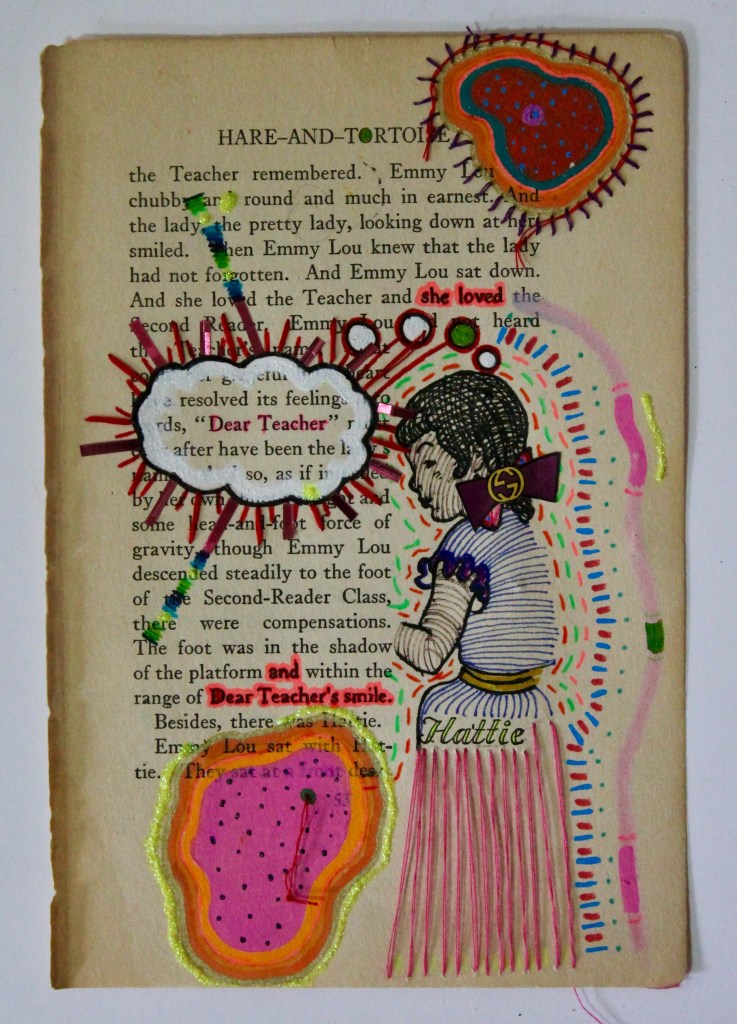 HARE-AND-TORTOISE
the Teacher remembered. Emmy Lou
chubby and round and much in earnest. And
the lady, the pretty lady, looking down at her
smiled. Then Emmy Lou knew that the lady
had not forgotten. And Emmy Lou sat down.
And she loved the Teacher and she loved the
Second Reader. Emmy Lou had not heard
the Teacher's name
heart
have resolved its feelings
"Dear Teacher"
after have been the
so, as if
by her own and
some head-and-foot force of
gravity, though Emmy Lou
descended steadily to the foot
of the Second-Reader Class,
there were compensations.
The foot was in the shadow
of the platform and within the
range of Dear Teacher's smile.
Besides, there was Hattie.
Emmy Lou sat with Hat-
tie. They sat at a front desk
53
Hattie